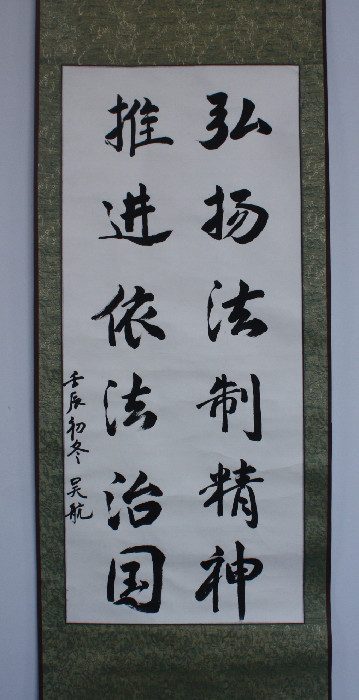 弘扬法制精神
推进依法治国
壬辰初冬 吴航